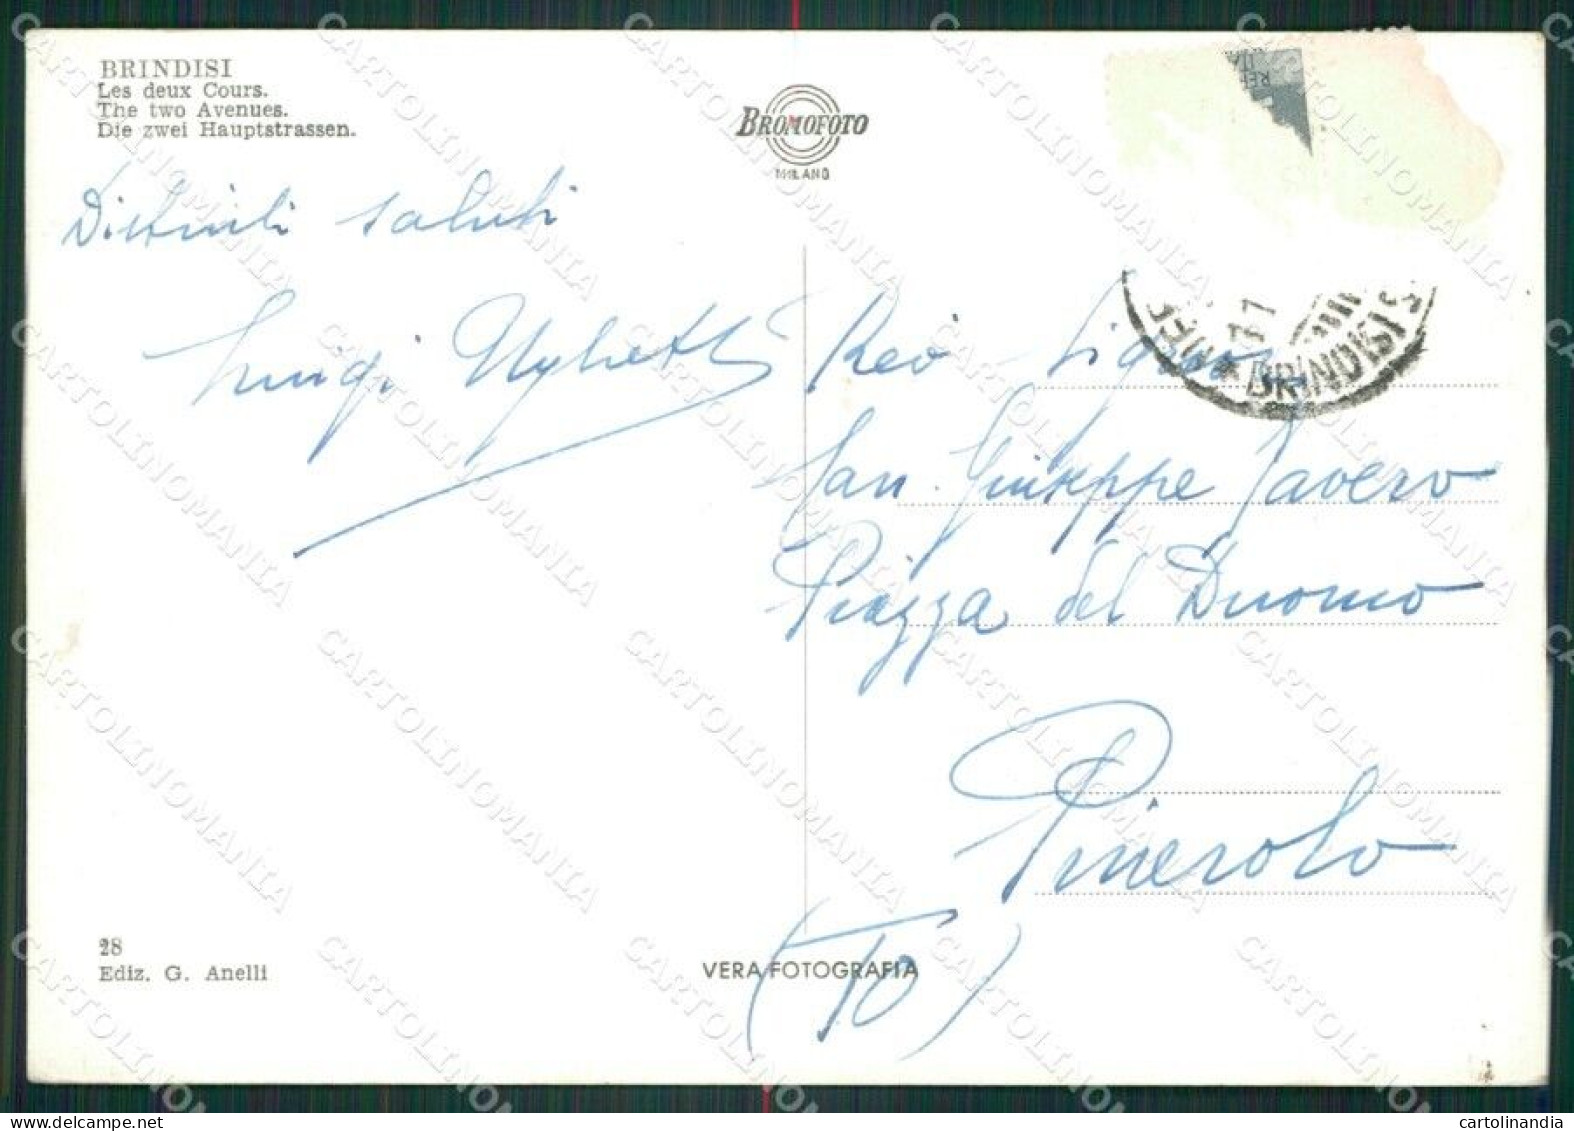 BRINDISI
Les deux Cours.
The two Avenues.
Die zwei Hauptstrassen.
BROMOFOTO
MILANO
Distinti saluti
Luigi
San Giuseppe Favero
Piazza del Duomo
Pinerolo
(TO)
BRINDISI
28
Ediz. G. Anelli
VERA FOTOGRAFIA
CARTOLINOMANIA
cartolinandia